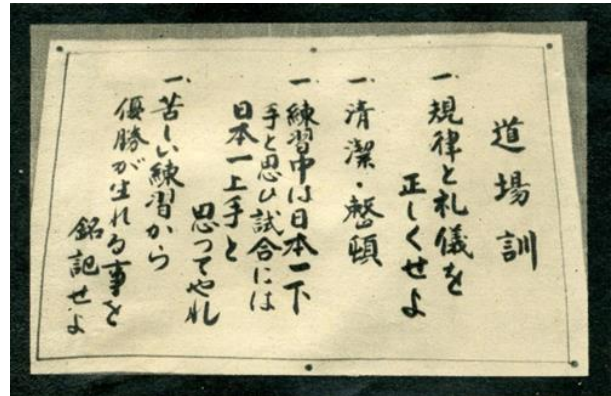 道場訓
一、規律と礼儀を
正しくせよ
一、清潔・整頓
一、練習中は日本一下
手と思ひ試合には
日本一上手と
思つてやれ
一、苦しい練習から
優勝が生れる事を
銘記せよ